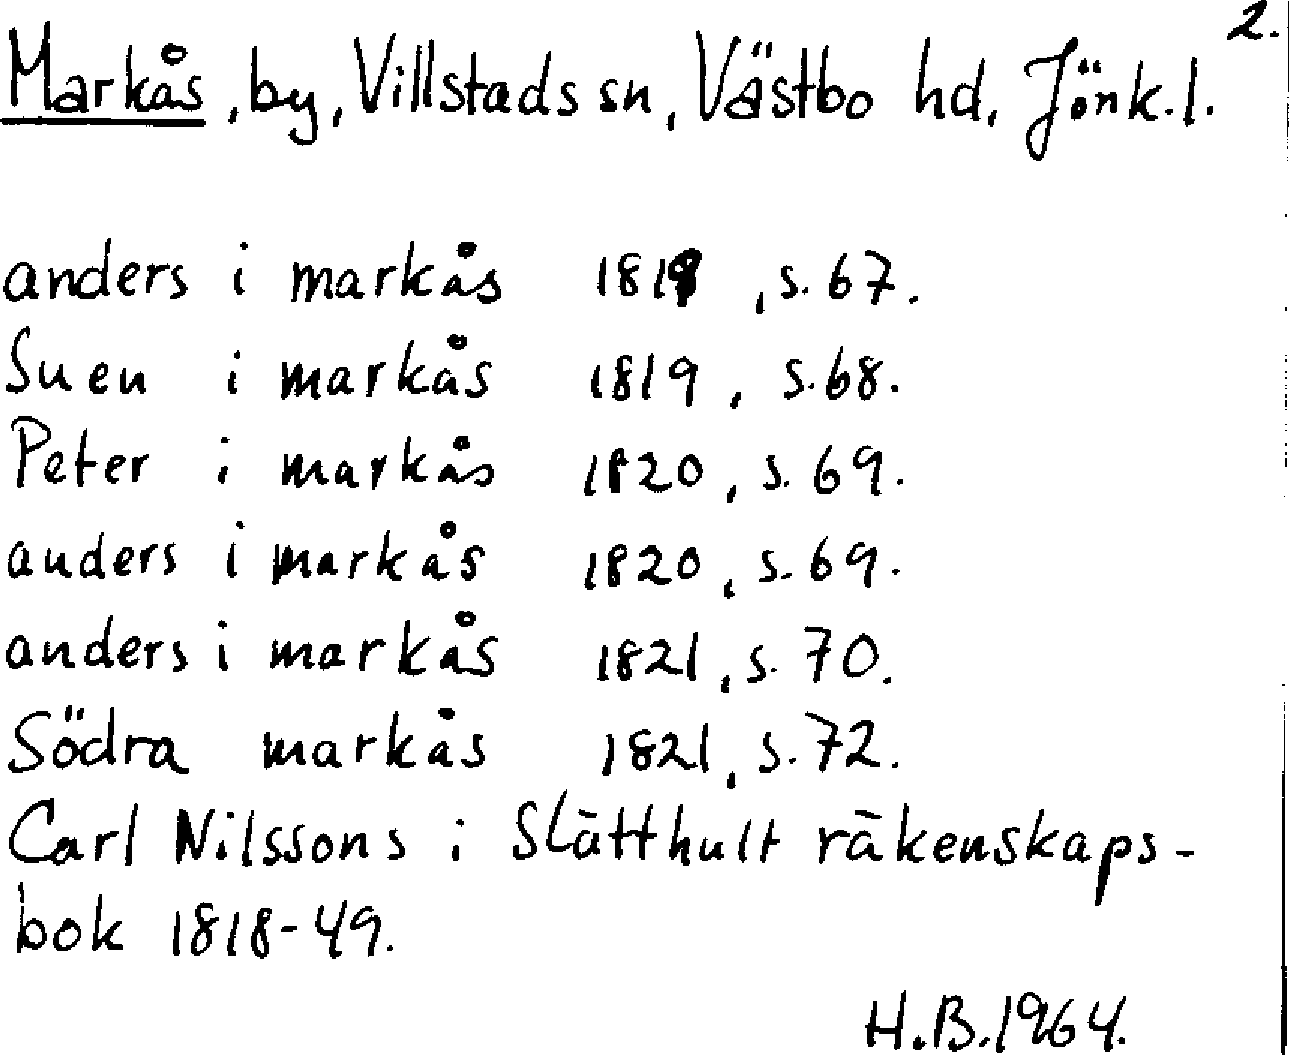 2.
Markås, by, Villstads sn, Västbo hd, Jönk. l.
anders i markås 1819, s. 67.
Suen i markås 1819, s. 68.
Peter i markås 1820, s. 69.
anders i markås 1820, s. 69.
anders i markås 1821, s. 70.
Södra markås 1821, s. 72.
Carl Nilssons i Slätthult räkenskaps-
bok 1818-49.
H.B. 1964.